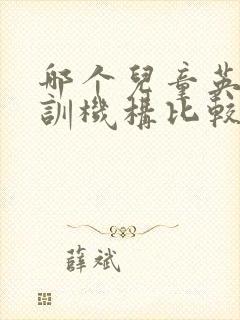 哪个兒童英
訓機構比較
薛斌